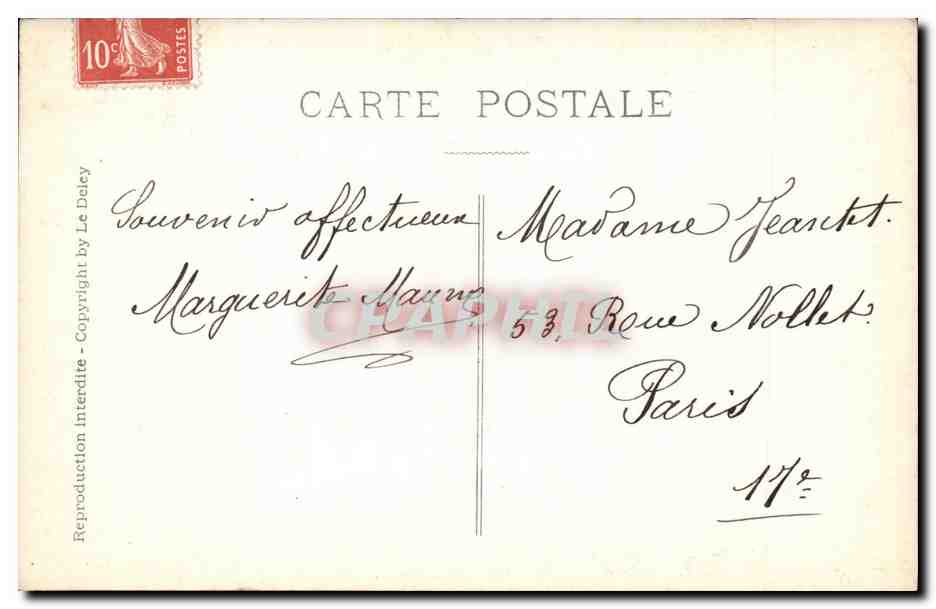 10c
POSTES
CARTE POSTALE
Reproduction interdite - Copyright by Le Deley
Souvenir affectueux
Marguerite
Madame Jeantet.
53, Rue Nollet.
Paris
17e
CPAPHIL